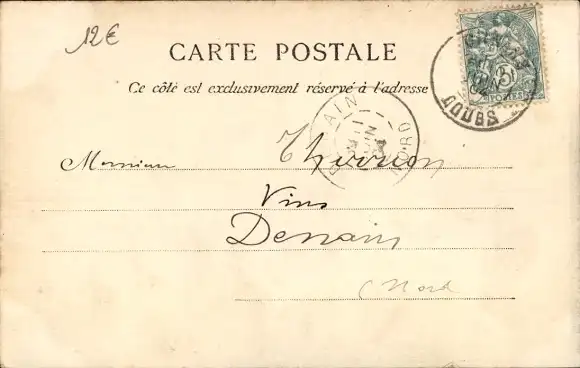 12€
CARTE POSTALE
Ce côté est exclusivement réservé à l'adresse
DOUBS
AIN
JUIN
NORD
5
POSTES
Monsieur
Vins
Denain
(Nord